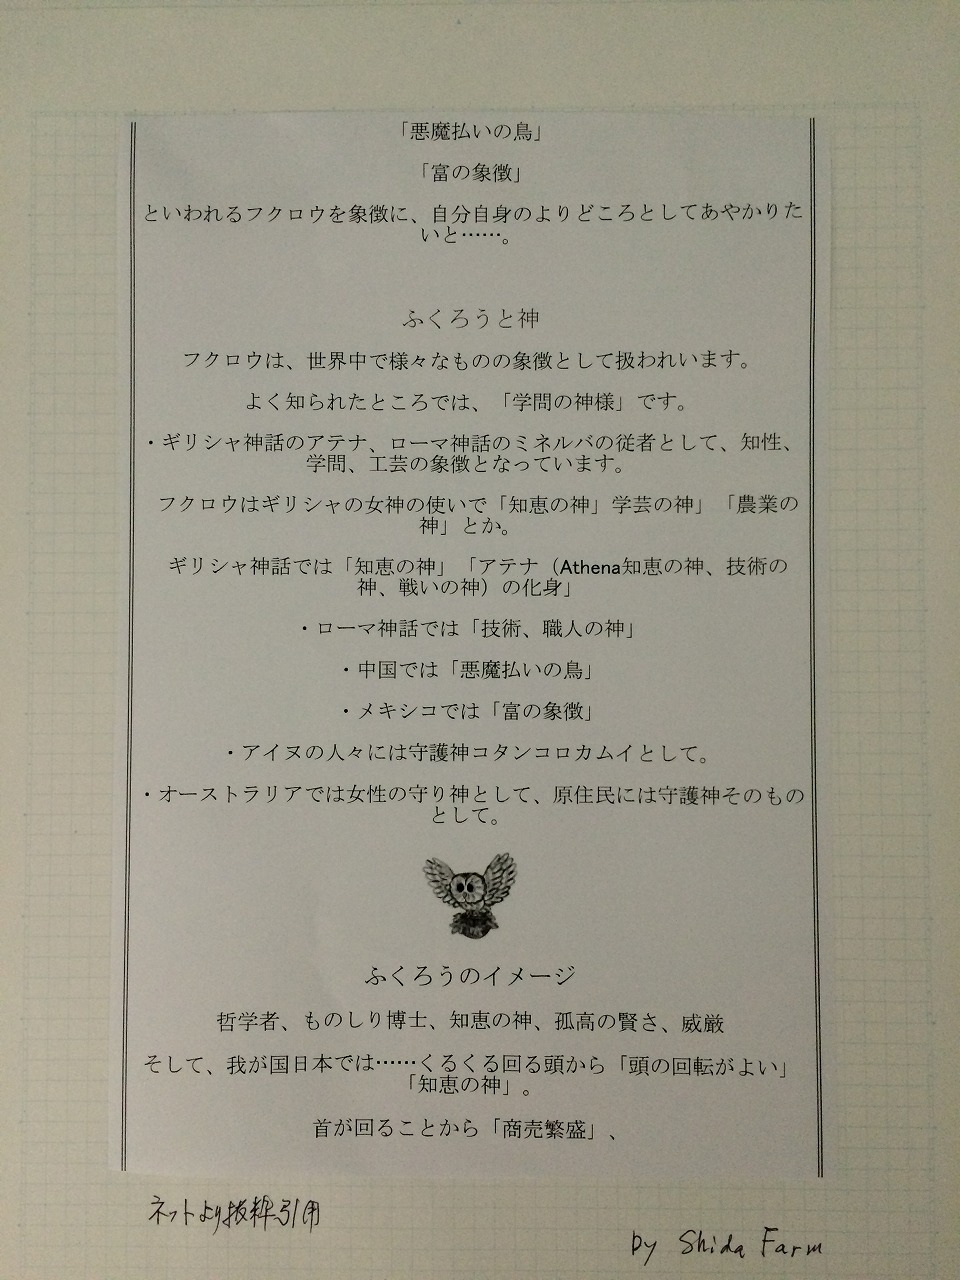 「悪魔払いの鳥」
「富の象徴」
といわれるフクロウを象徴に、自分自身のよりどころとしてあやかりた
いと……。
ふくろうと神
フクロウは、世界中で様々なものの象徴として扱われいます。
よく知られたところでは、「学問の神様」です。
・ギリシャ神話のアテナ、ローマ神話のミネルバの従者として、知性、
学問、工芸の象徴となっています。
フクロウはギリシャの女神の使いで「知恵の神」学芸の神」「農業の
神」とか。
ギリシャ神話では「知恵の神」「アテナ（Athena知恵の神、技術の
神、戦いの神）の化身」
・ローマ神話では「技術、職人の神」
・中国では「悪魔払いの鳥」
・メキシコでは「富の象徴」
・アイヌの人々には守護神コタンコロカムイとして。
・オーストラリアでは女性の守り神として、原住民には守護神そのもの
として。
ふくろうのイメージ
哲学者、ものしり博士、知恵の神、孤高の賢さ、威厳
そして、我が国日本では……くるくる回る頭から「頭の回転がよい」
「知恵の神」。
首が回ることから「商売繁盛」、
ネットより抜粋引用
by Shida Farm